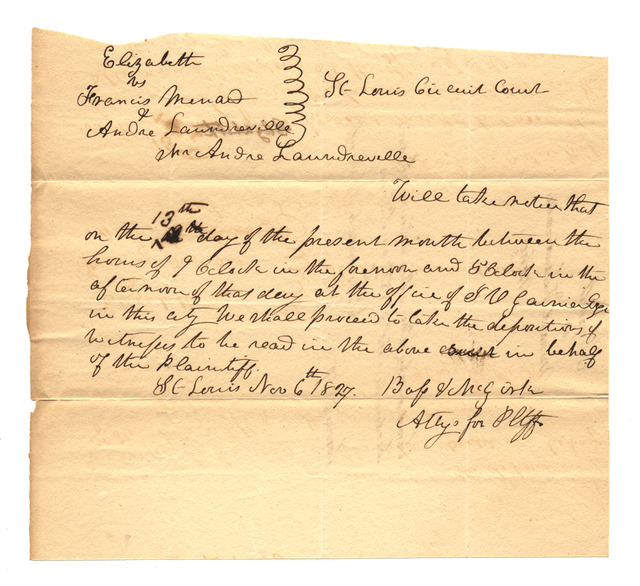 Elizabeth
vs
Francis Menard
&
Andre Laundreville
St Louis Circuit Court
Mr Andre Laundreville
Will take notice that
on the 13th day of the present month between the
hours of 9 OClock in the forenoon and 5 OClock in the
afternoon of that day at the office of J V Garnier Esqr
in this city We shall proceed to take the depositions of
witnesses to be read in the above in behalf
of the Plaintiff.
St Louis Nov 6th 1827. Bass & McGirk
Attys for Pltff